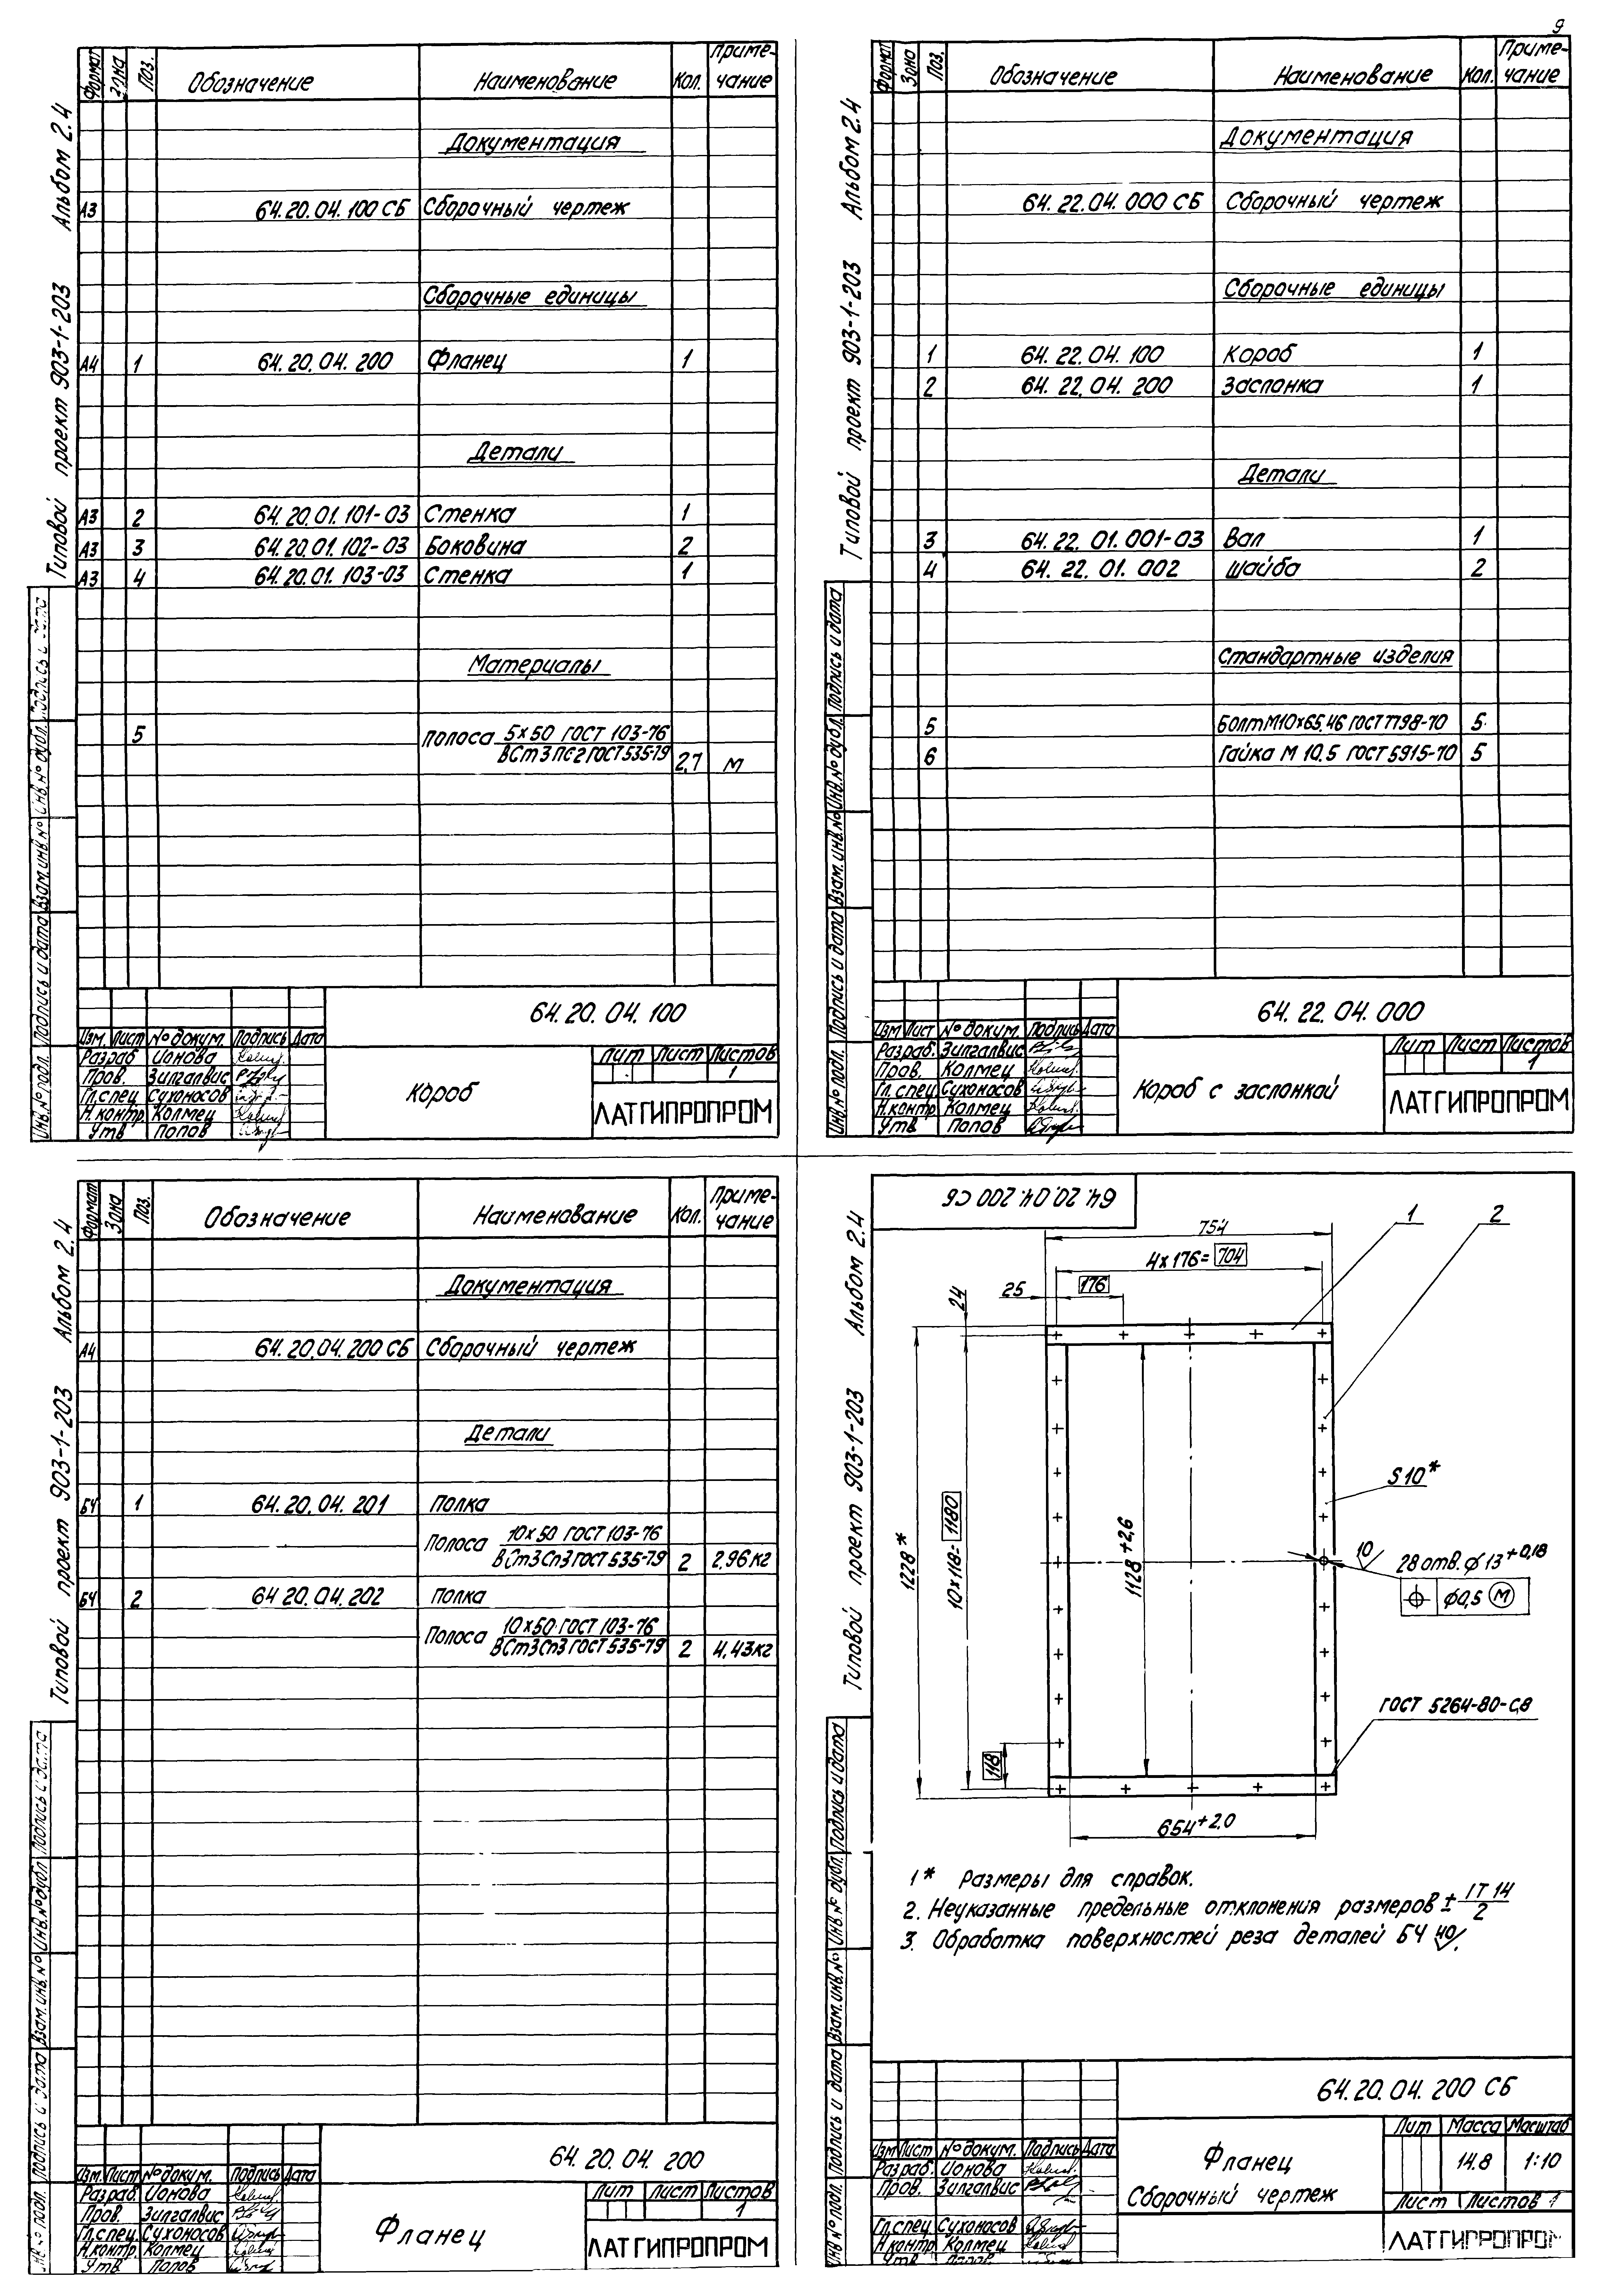 9
Альбом 2.4
Типовой проект 903-1-203
Формат Зона Поз. Обозначение Наименование Кол. Приме-чание
Документация
А3 64.20.04.100 СБ Сборочный чертеж
Сборочные единицы
А4 1 64.20.04.200 Фланец 1
Детали
А3 2 64.20.01.101-03 Стенка 1
А3 3 64.20.01.102-03 Боковина 2
А3 4 64.20.01.103-03 Стенка 1
Материалы
5 Полоса 5х50 ГОСТ 103-76
ВСт3пс2 ГОСТ 535-79 2,7 м
Инв.№ подл. Подпись и дата Взам.инв.№ Инв.№ дубл. Подпись и дата
64.20.04.100
Изм. Лист № докум. Подпись Дата
Разраб Ионова
Пров. Зилгалвис
Гл.спец Сухоносов
Н.контр. Колмец
Утв Попов
Короб
Лит Лист Листов
1
ЛАТГИПРОПРОМ
Альбом 2.4
Типовой проект 903-1-203
Формат Зона Поз. Обозначение Наименование Кол. Приме-чание
Документация
64.22.04.000 СБ Сборочный чертеж
Сборочные единицы
1 64.22.04.100 Короб 1
2 64.22.04.200 Заслонка 1
Детали
3 64.22.01.001-03 Вал 1
4 64.22.01.002 Шайба 2
Стандартные изделия
5 Болт М10х65.46 ГОСТ 7798-70 5
6 Гайка М10.5 ГОСТ 5915-70 5
Инв.№ подл. Подпись и дата Взам.инв.№ Инв.№ дубл. Подпись и дата
64.22.04.000
Изм Лист № докум. Подпись Дата
Разраб. Зилгалвис
Пров. Колмец
Гл.спец Сухоносов
Н.контр Колмец
Утв Попов
Короб с заслонкой
Лит Лист Листов
1
ЛАТГИПРОПРОМ
Альбом 2.4
Типовой проект 903-1-203
Формат Зона Поз. Обозначение Наименование Кол. Приме-чание
Документация
А4 64.20.04.200 СБ Сборочный чертеж
Детали
БЧ 1 64.20.04.201 Полка
Полоса 10х50 ГОСТ 103-76
ВСт3сп3 ГОСТ 535-79 2 2,96 кг
БЧ 2 64.20.04.202 Полка
Полоса 10х50 ГОСТ 103-76
ВСт3сп3 ГОСТ 535-79 2 4,43 кг
Подпись и дата Взам.инв.№ Инв.№ дубл Подпись и дата
64.20.04.200
Изм. Лист № докум. Подпись Дата
Разраб. Ионова
Пров. Зилгалвис
Гл.спец. Сухоносов
Н.контр. Колмец
Утв. Попов
Фланец
Лит Лист Листов
1
ЛАТГИПРОПРОМ
Альбом 2.4
Типовой проект 903-1-203
64.20.04.200 СБ
754
4х176=704
25 176
24
1 2
1228*
10х118=1180
1128+2,6
118
654+2,0
S10*
10
28 отв. ф13+0,18
ф0,5 М
ГОСТ 5264-80-С8
1* Размеры для справок.
2. Неуказанные предельные отклонения размеров ± IT14/2
3. Обработка поверхностей реза деталей БЧ 40.
Инв № подл. Подпись и дата Взам.инв.№ Инв.№ дубл. Подпись и дата
64.20.04.200 СБ
Изм Лист № докум. Подпись Дата
Разраб. Ионова
Пров. Зилгалвис
Гл.спец Сухоносов
Н.контр Колмец
Утв. Попов
Фланец
Сборочный чертеж
Лит Масса Масштаб
14.8 1:10
Лист Листов 1
ЛАТГИПРОПРОМ